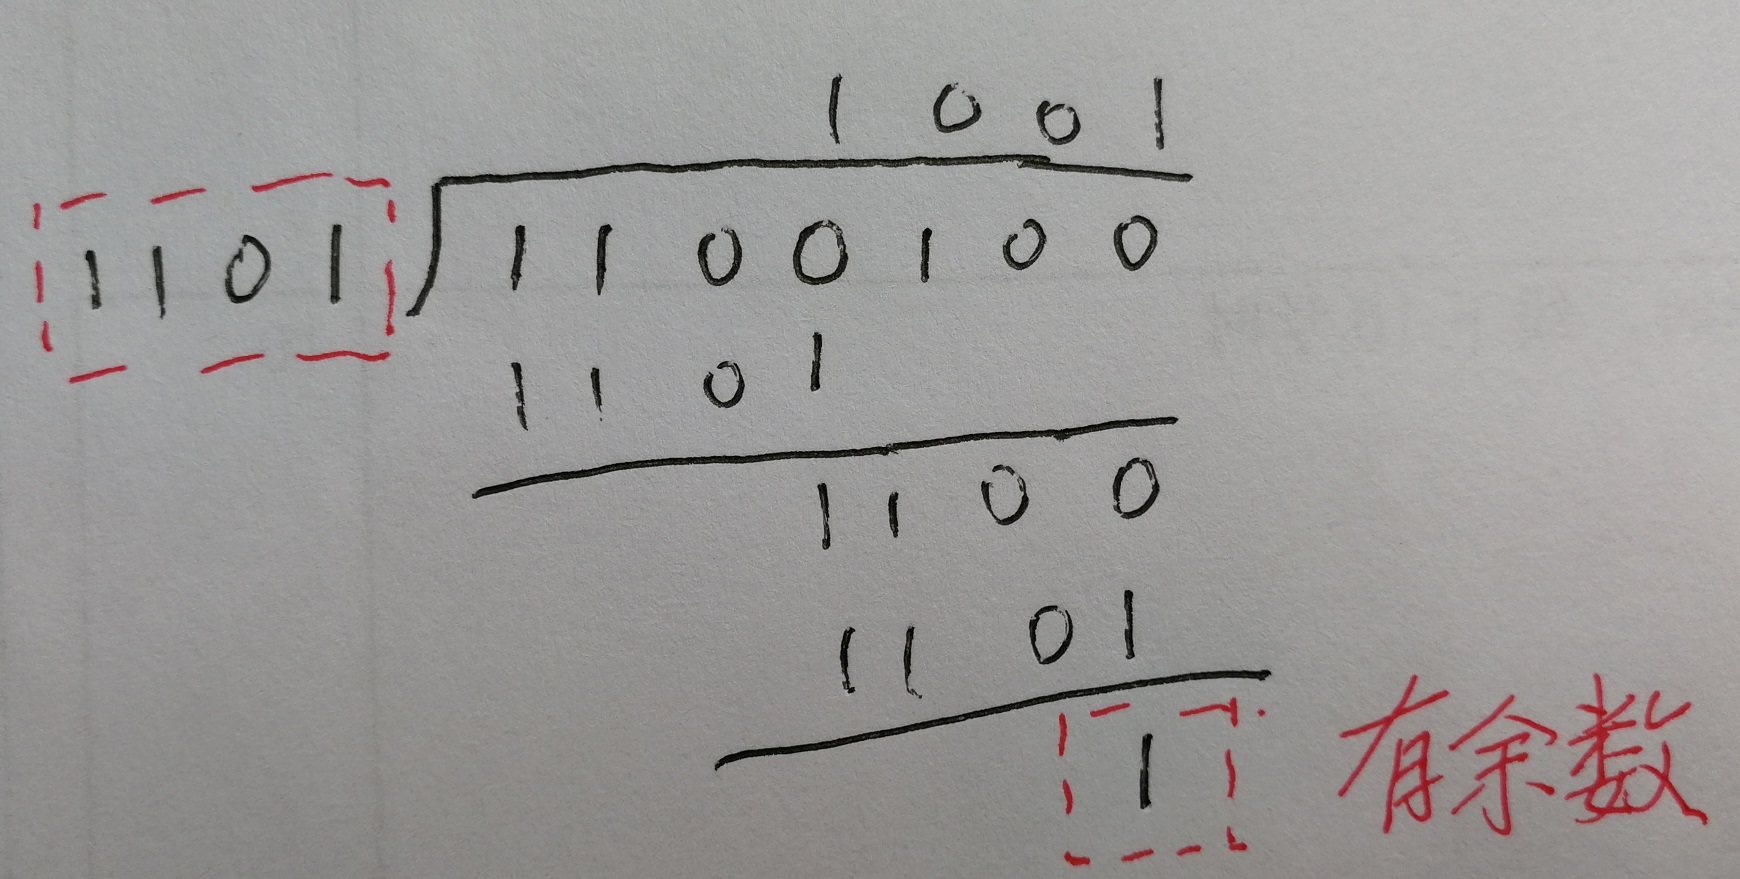 1001
1101 1100100
1101
1100
1101
1 有余数